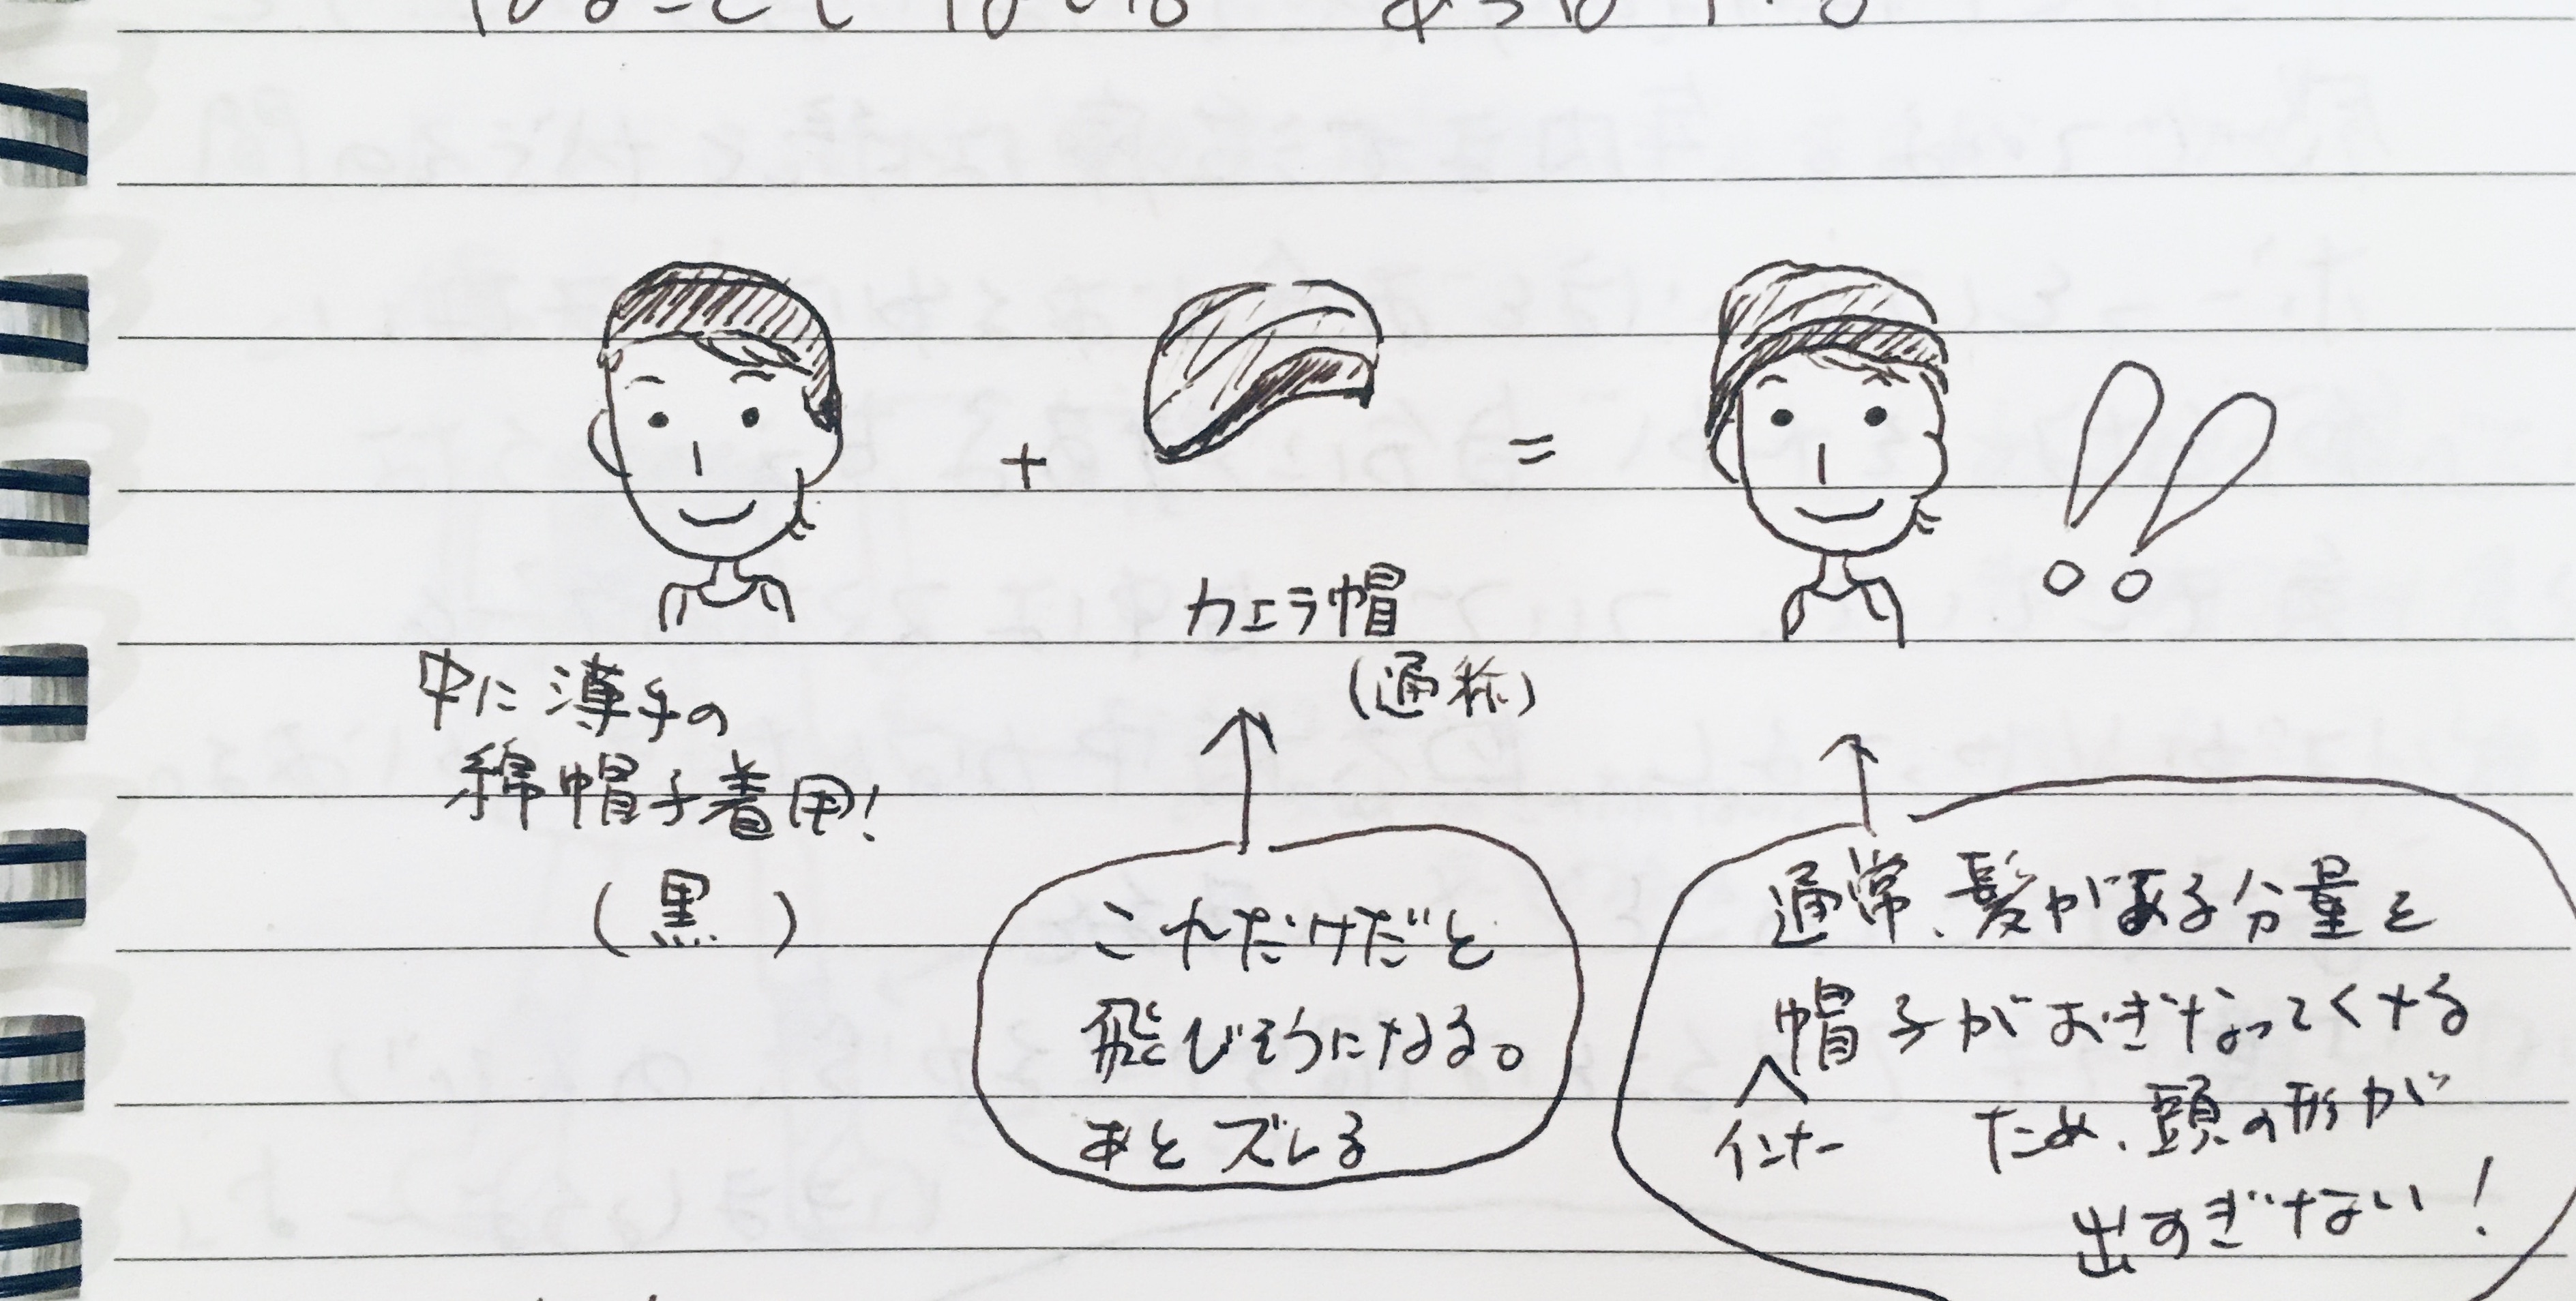 中に薄手の
綿帽子着用!
(黒)
+
カエラ帽
(通称)
=
!!
これだけだと
飛びそうになる。
あとズレる
通常、髪がある分量を
帽子がおぎなってくれる
インナー
ため、頭の形が
出すぎない!